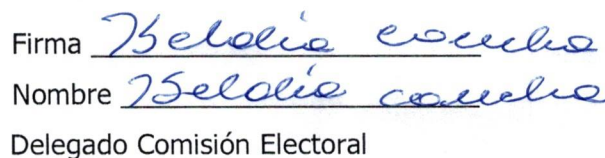 Firma Beldia concha
Nombre Beldia concha
Delegado Comisión Electoral